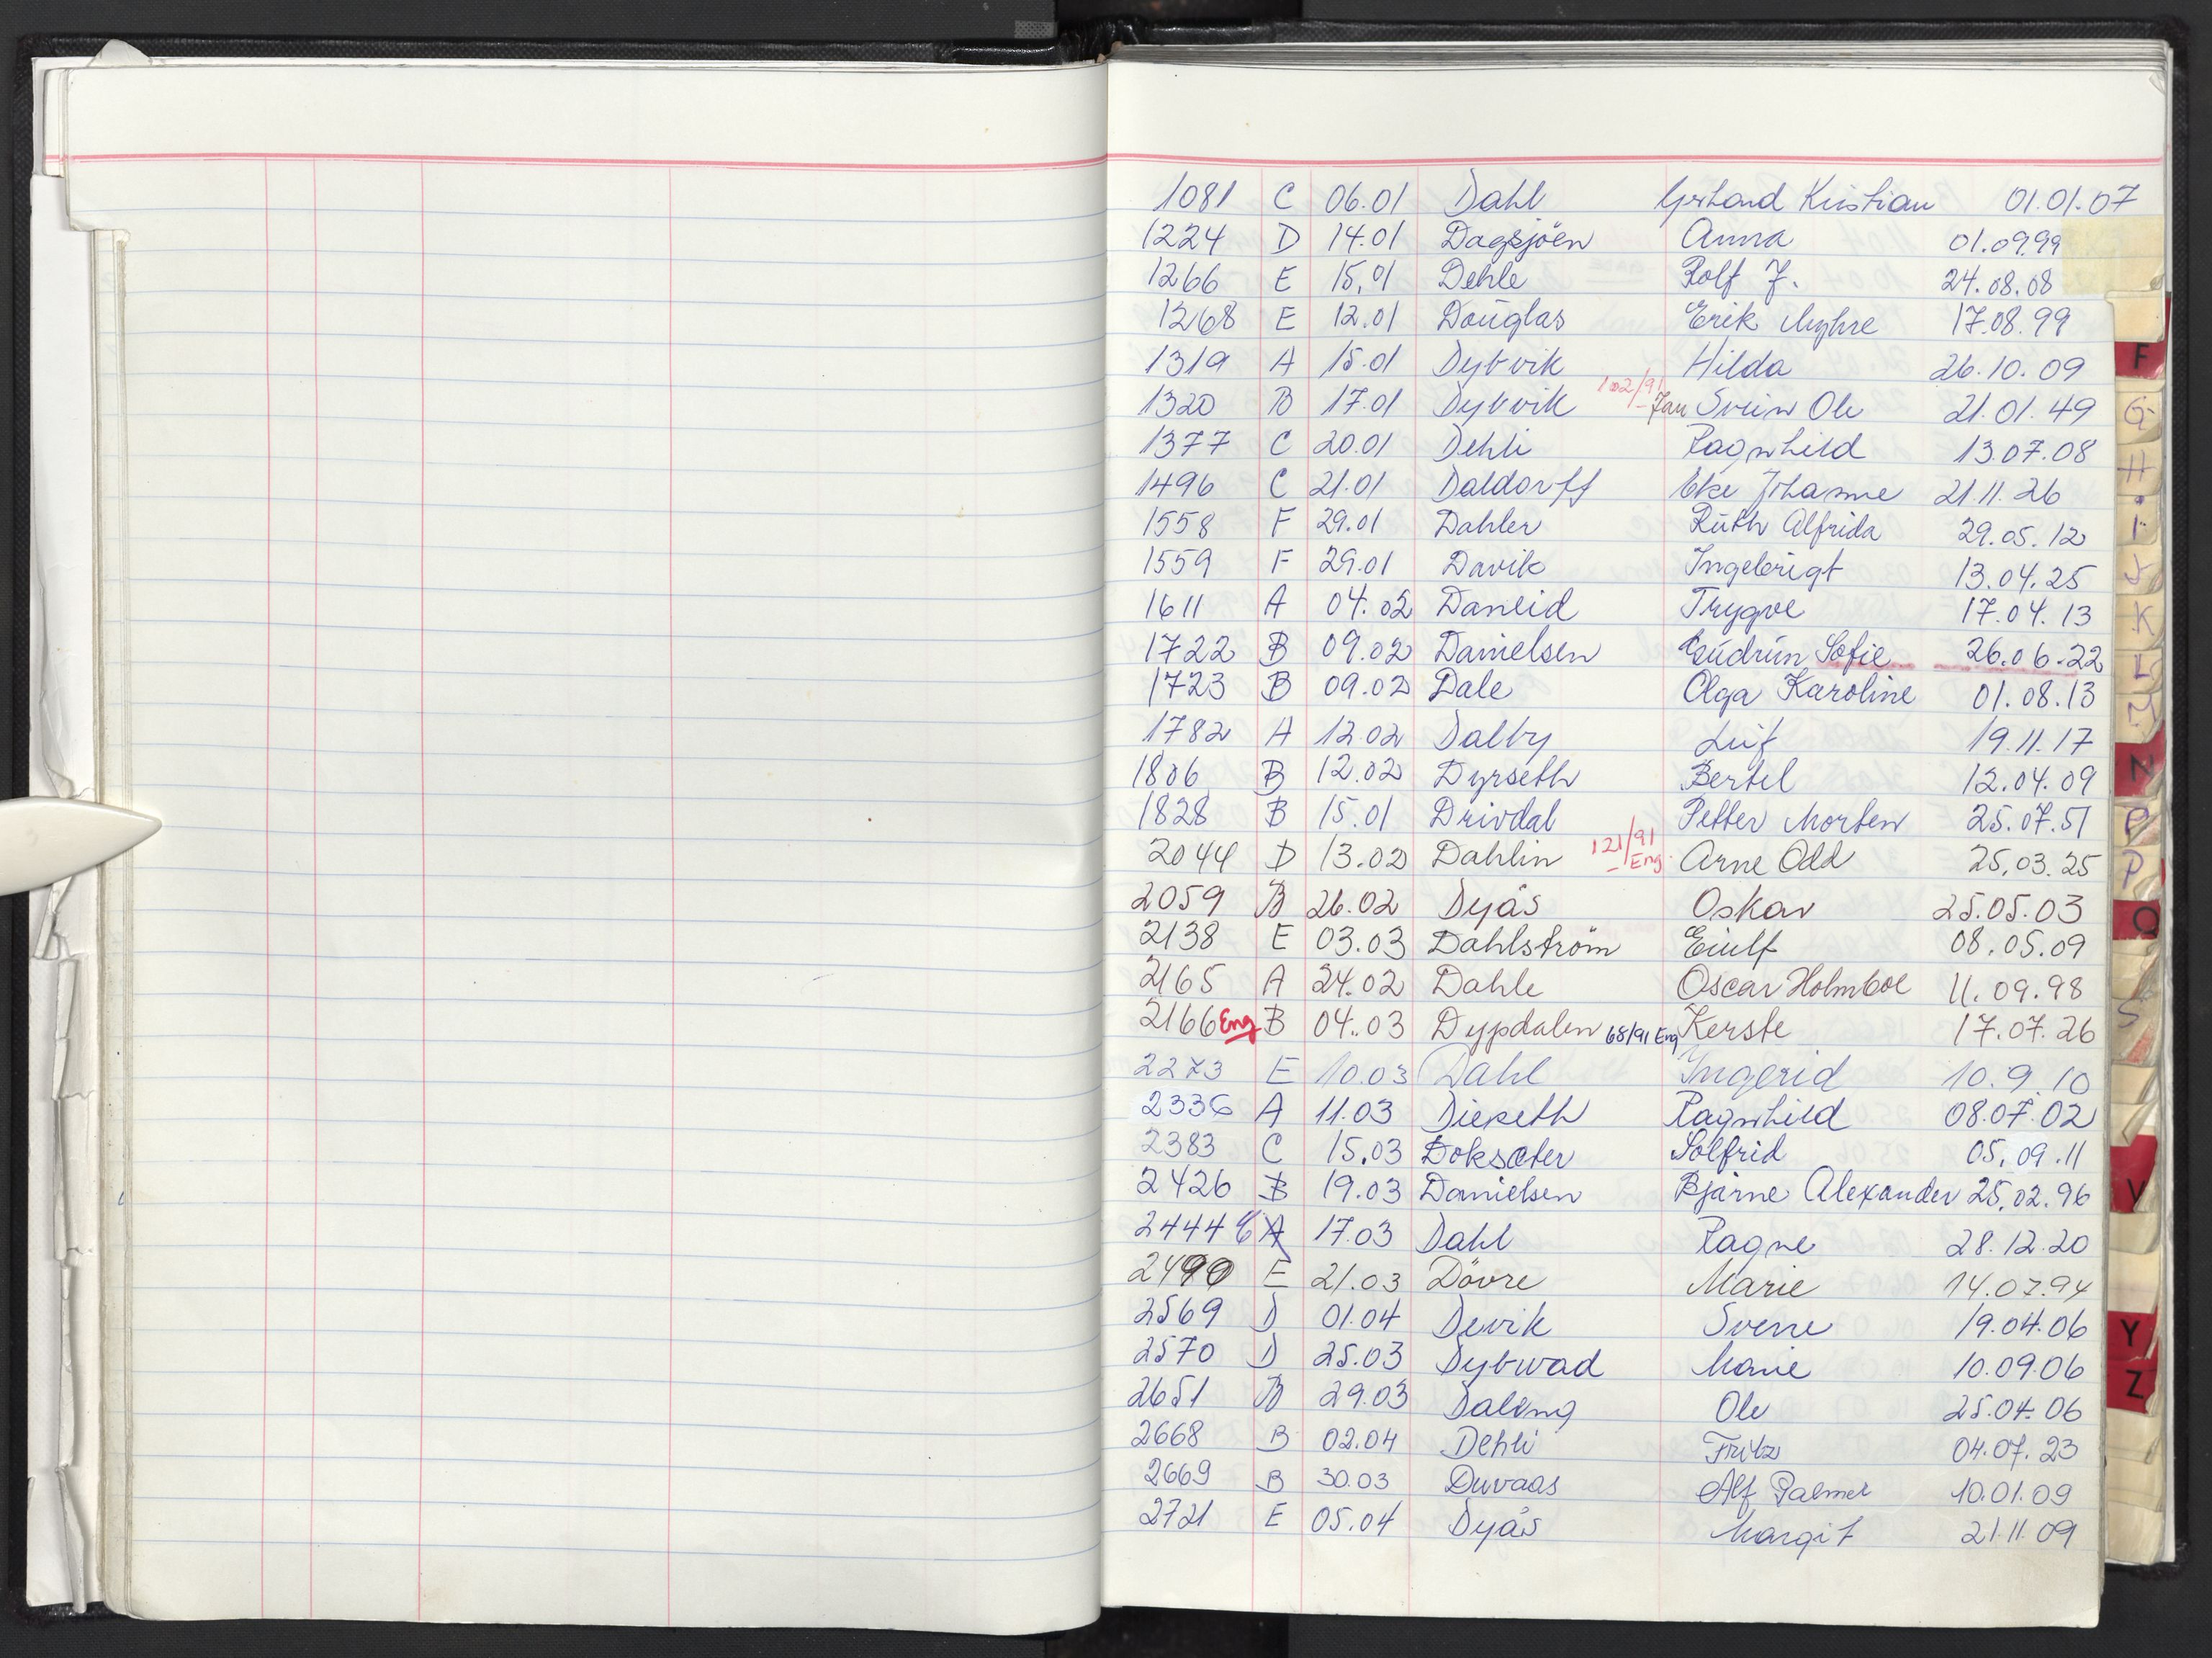 1081 C 06.01 Dahl Gerhard Kristian 01.01.07
1224 D 14.01 Dagsjöen Anna 01.09.99
1266 E 15.01 Dehle Rolf J. 24.08.08
1268 E 12.01 Douglas Erik Myhre 17.08.99
1319 A 15.01 Dybvik Hilda 26.10.09
102/91
1320 B 17.01 Dybvik - Jan Svein Ole 21.01.49
1377 C 20.01 Dehli Ragnhild 13.07.08
1496 C 21.01 Daldorff Eke Johanne 21.11.26
1558 F 29.01 Dahler Ruth Alfrida 29.05.12
1559 F 29.01 Davik Ingebrigt 13.04.25
1611 A 04.02 Daneid Trygve 17.04.13
1722 B 09.02 Danielsen Gudrun Sofie 26.06.22
1723 B 09.02 Dale Olga Karoline 01.08.13
1782 A 12.02 Dalby Leif 19.11.17
1806 B 12.02 Dyrseth Bertel 12.04.09
1828 B 15.01 Drivdal Petter Morten 25.07.51
121/91
2044 D 13.02 Dahlin - Eng. Arne Odd 25.03.25
2059 B 26.02 Dyås Oskar 25.05.03
2138 E 03.03 Dahlström Eiulf 08.05.09
2165 A 24.02 Dahle Oscar Holmboe 11.09.98
2166 Eng B 04.03 Dypdalen 68/91 Eng Kerste 17.07.26
2273 E 10.03 Dahl Ingerid 10.9.10
2336 A 11.03 Dieseth Ragnhild 08.07.02
2383 C 15.03 Doksæter Solfrid 05.09.11
2426 B 19.03 Danielsen Bjarne Alexander 25.02.96
2444 A 17.03 Dahl Ragne 28.12.20
2490 E 21.03 Dövre Marie 14.07.94
2569 D 01.04 Devik Sverre 19.04.06
2570 D 25.03 Dybwad Marie 10.09.06
2651 B 29.03 Daleng Ole 25.04.06
2668 B 02.04 Dehli Fritz 04.07.23
2669 B 30.03 Duvaas Alf Palmer 10.01.09
2721 E 05.04 Dyås Margit 21.11.09
F
G
H
I
J
K
L
M
N
P
P
Q
S
V
Y
Z